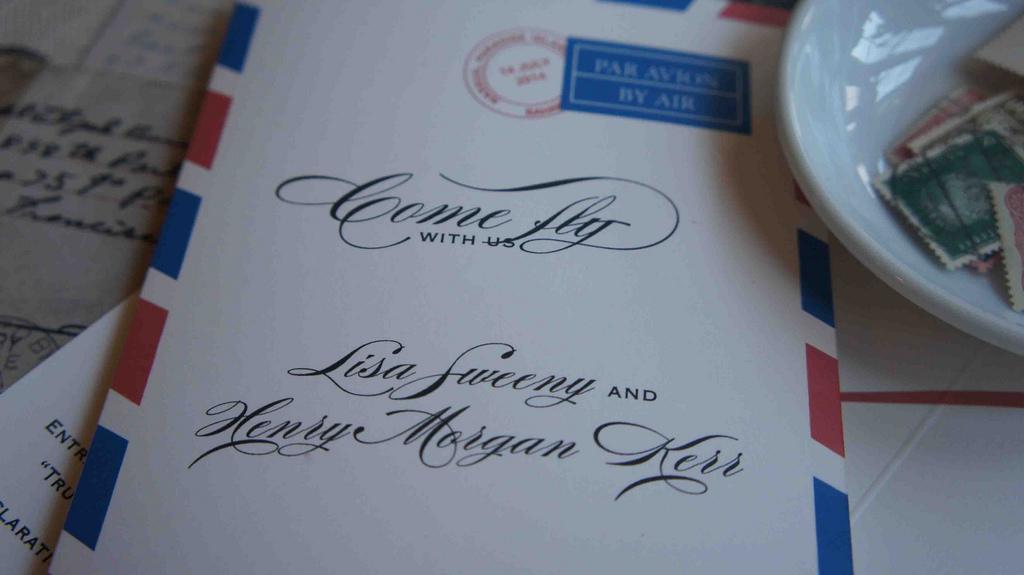 14 JULY
2014
PAR AVION
BY AIR
Come fly
WITH US
Lisa Sweeny AND
Henry Morgan Kerr
ENTR
"TRU
LARATI